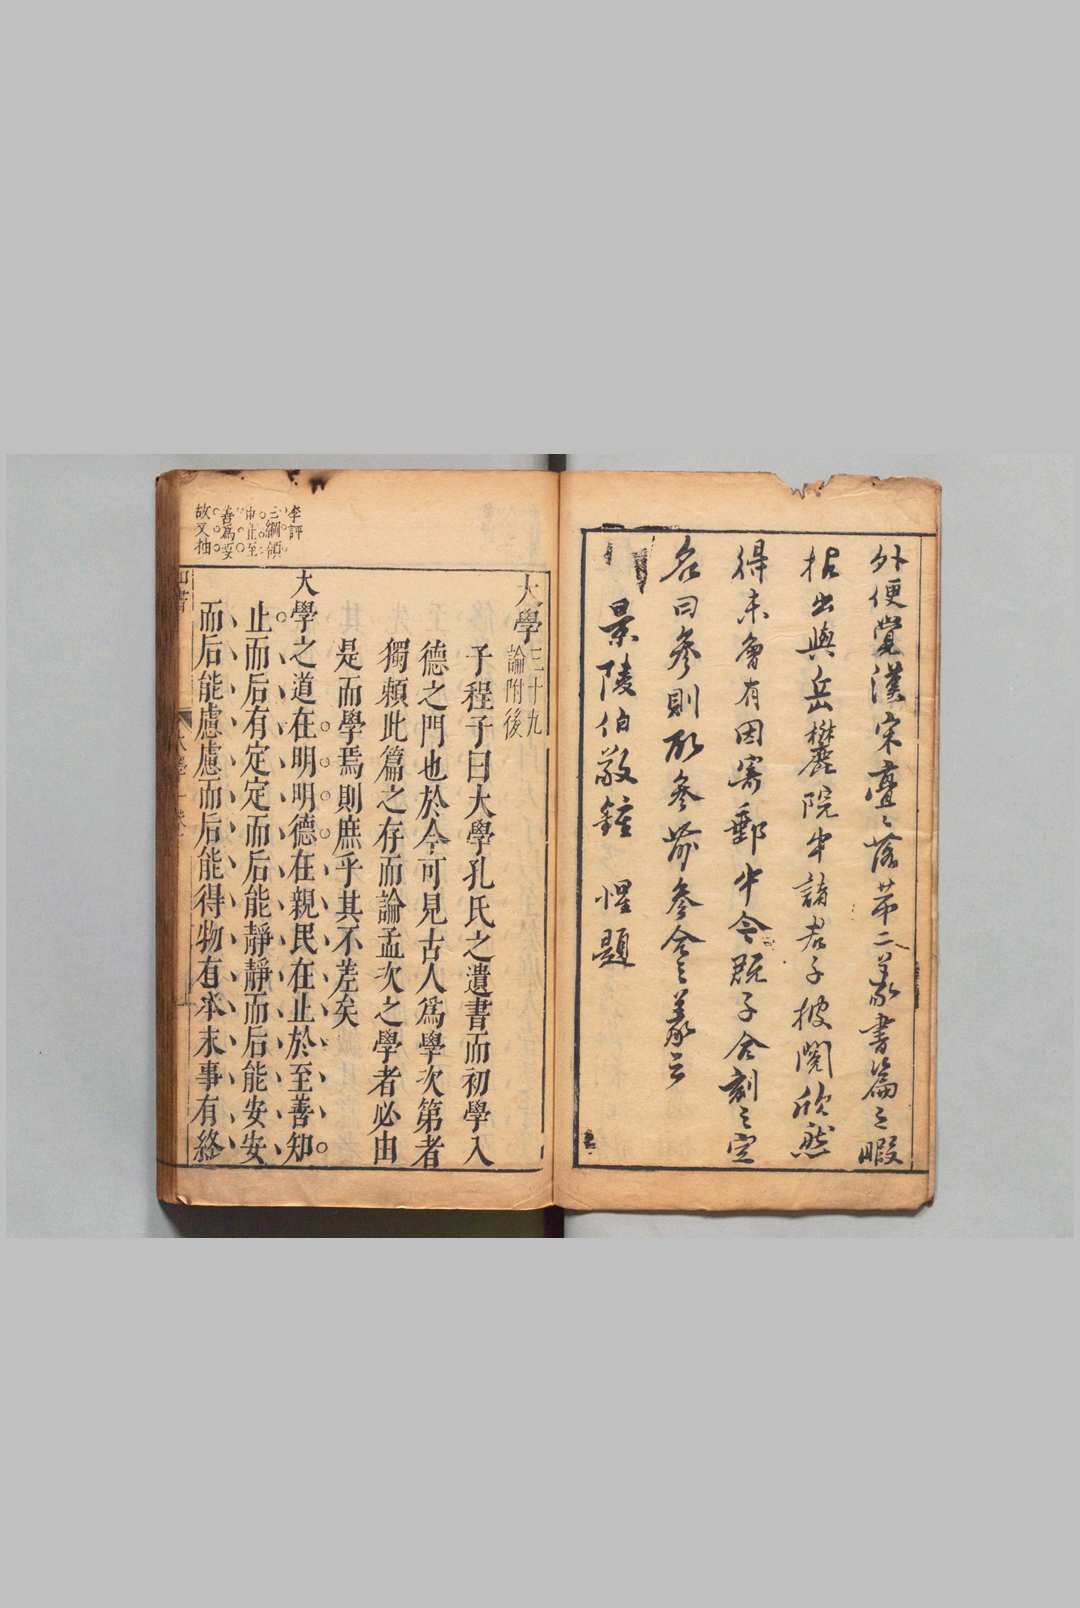 外便覺漢宋亹〻落第二義書篇之暇
拈出與岳麓院中諸君子披閱欣然
得未曾有因寄郵中令既子合刻之定
名曰參則取參前參合之義云
景陵伯敬鍾惺題
大學三十九
論附後
子程子曰大學孔氏之遺書而初學入
德之門也於今可見古人爲學次第者
獨賴此篇之存而論孟次之學者必由
是而學焉則庶乎其不差矣
大學之道在明明德在親民在止於至善知
止而后有定定而后能靜靜而后能安安
而后能慮慮而后能得物有本末事有終
李評
三綱領
中止至
善爲要
故又抽